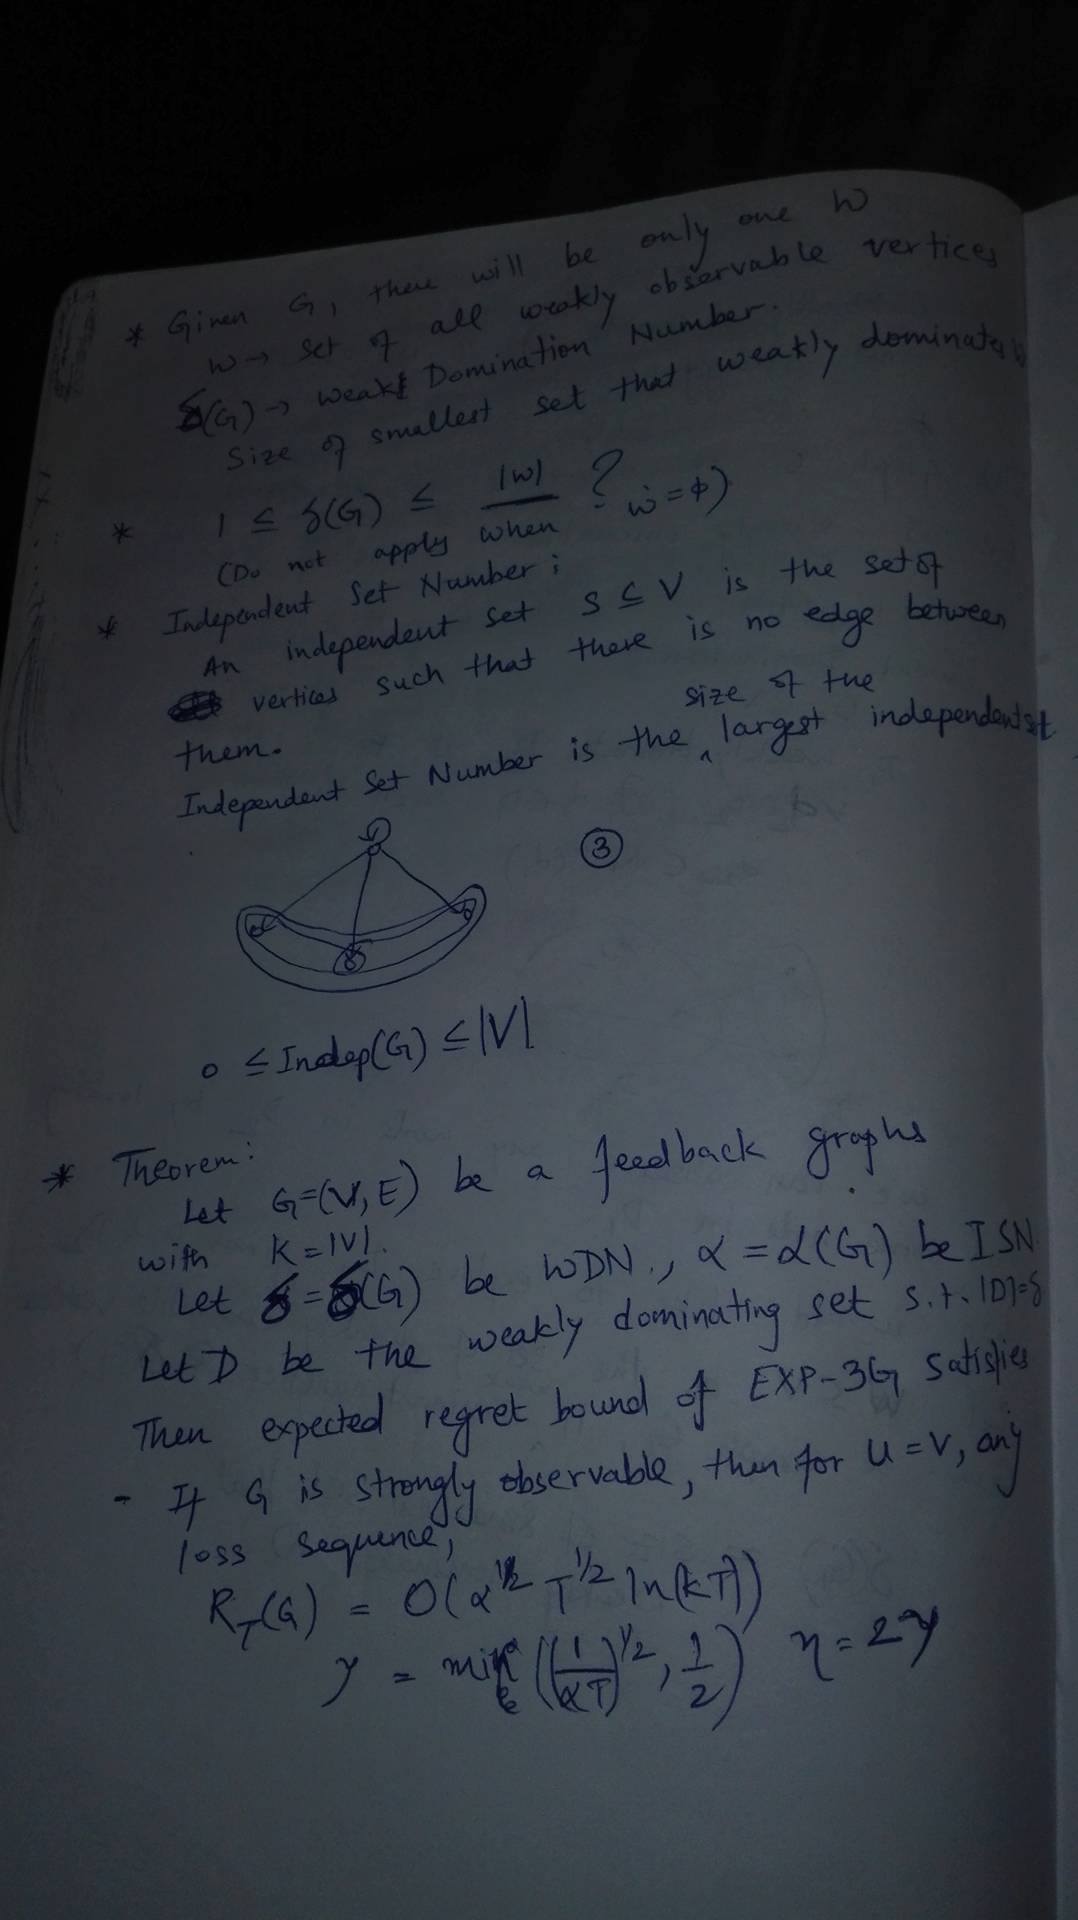 * Given G, there will be only one W
W → set of all weakly observable vertices
δ(G) → Weak Domination Number.
Size of smallest set that weakly dominates W
* 1 ≤ δ(G) ≤ |W| ?
(Do not apply when W = ϕ)
* Independent Set Number :
An independent set S ⊆ V is the set of
vertices such that there is no edge between
them.
Independent Set Number is the size of the largest independent set
3
0 ≤ Indep(G) ≤ |V|
* Theorem:
Let G=(V, E) be a feedback graphs
with K = |V|.
Let δ = δ(G) be WDN., α = α(G) be ISN
Let D be the weakly dominating set s.t. |D|=δ
Then expected regret bound of EXP-3G satisfies
- If G is strongly observable, then for U = V, any
loss sequence,
R_T(G) = O(α^1/2 T^1/2 ln(KT))
γ = min((1/αT)^1/2, 1/2) η = 2γ